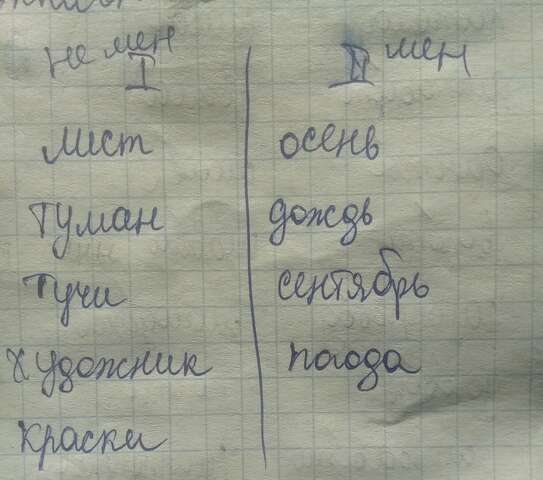 не мен I
II мен
лист
осень
туман
дождь
тучи
сентябрь
художник
погода
краски